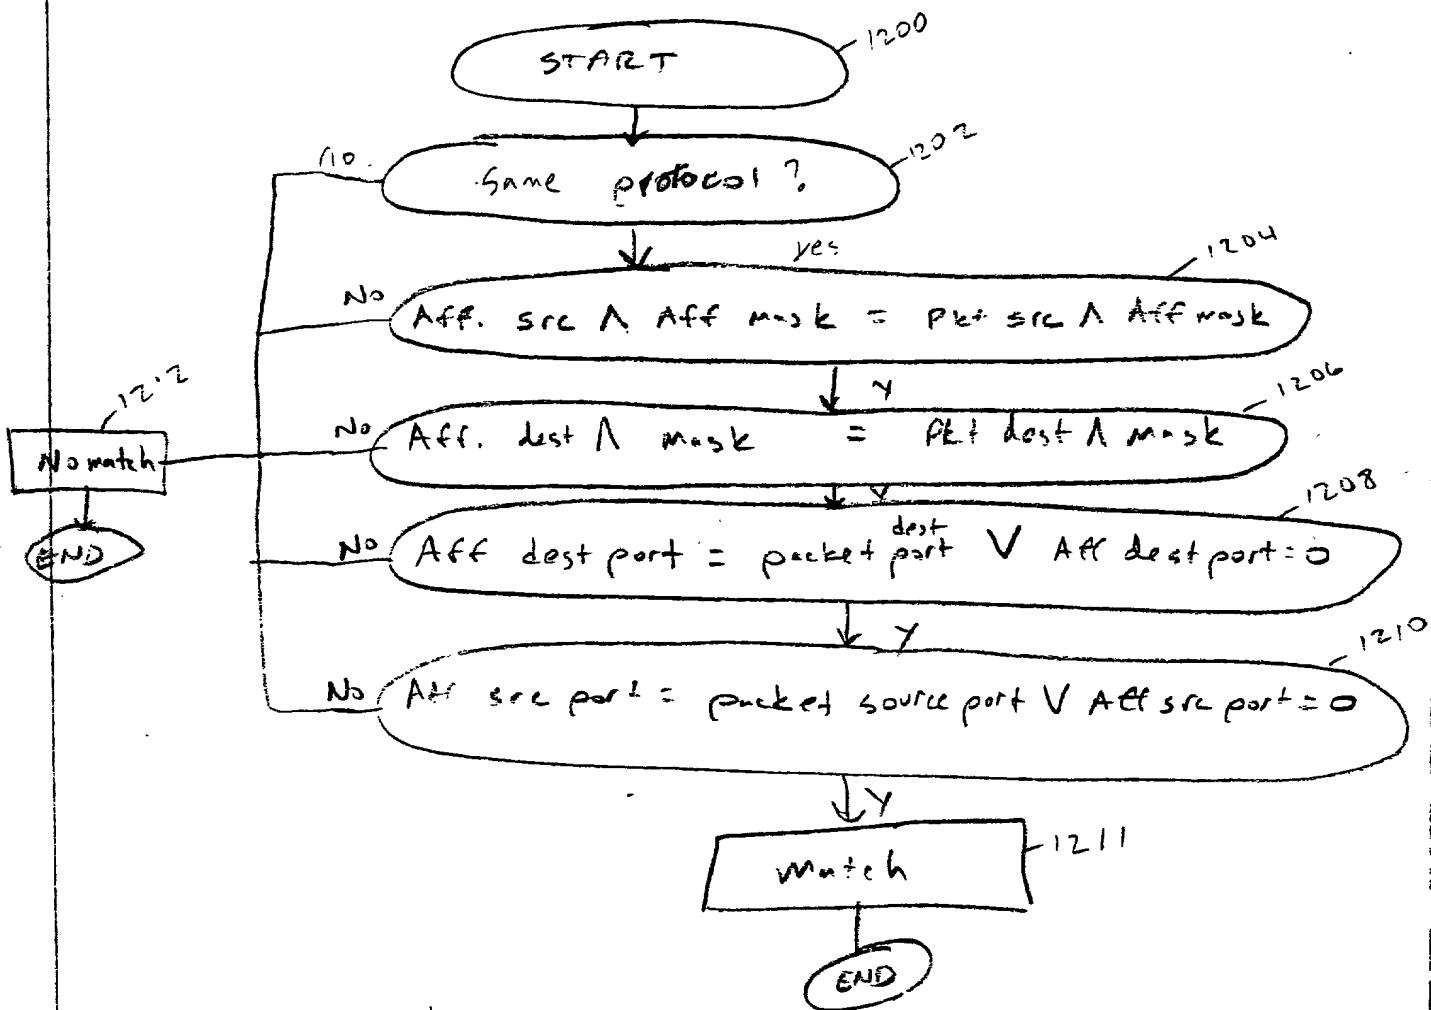 START
1200
no.
Same protocol?
1202
yes
1204
No
Aff. src Λ Aff mask = Pkt src Λ Aff mask
Y
1206
1212
No match
END
No
Aff. dest Λ mask = Pkt dest Λ mask
Y
1208
No
dest
Aff dest port = packet port V Aff dest port = 0
Y
1210
No
Aff src port = packet source port V Aff src port = 0
Y
Match
1211
END